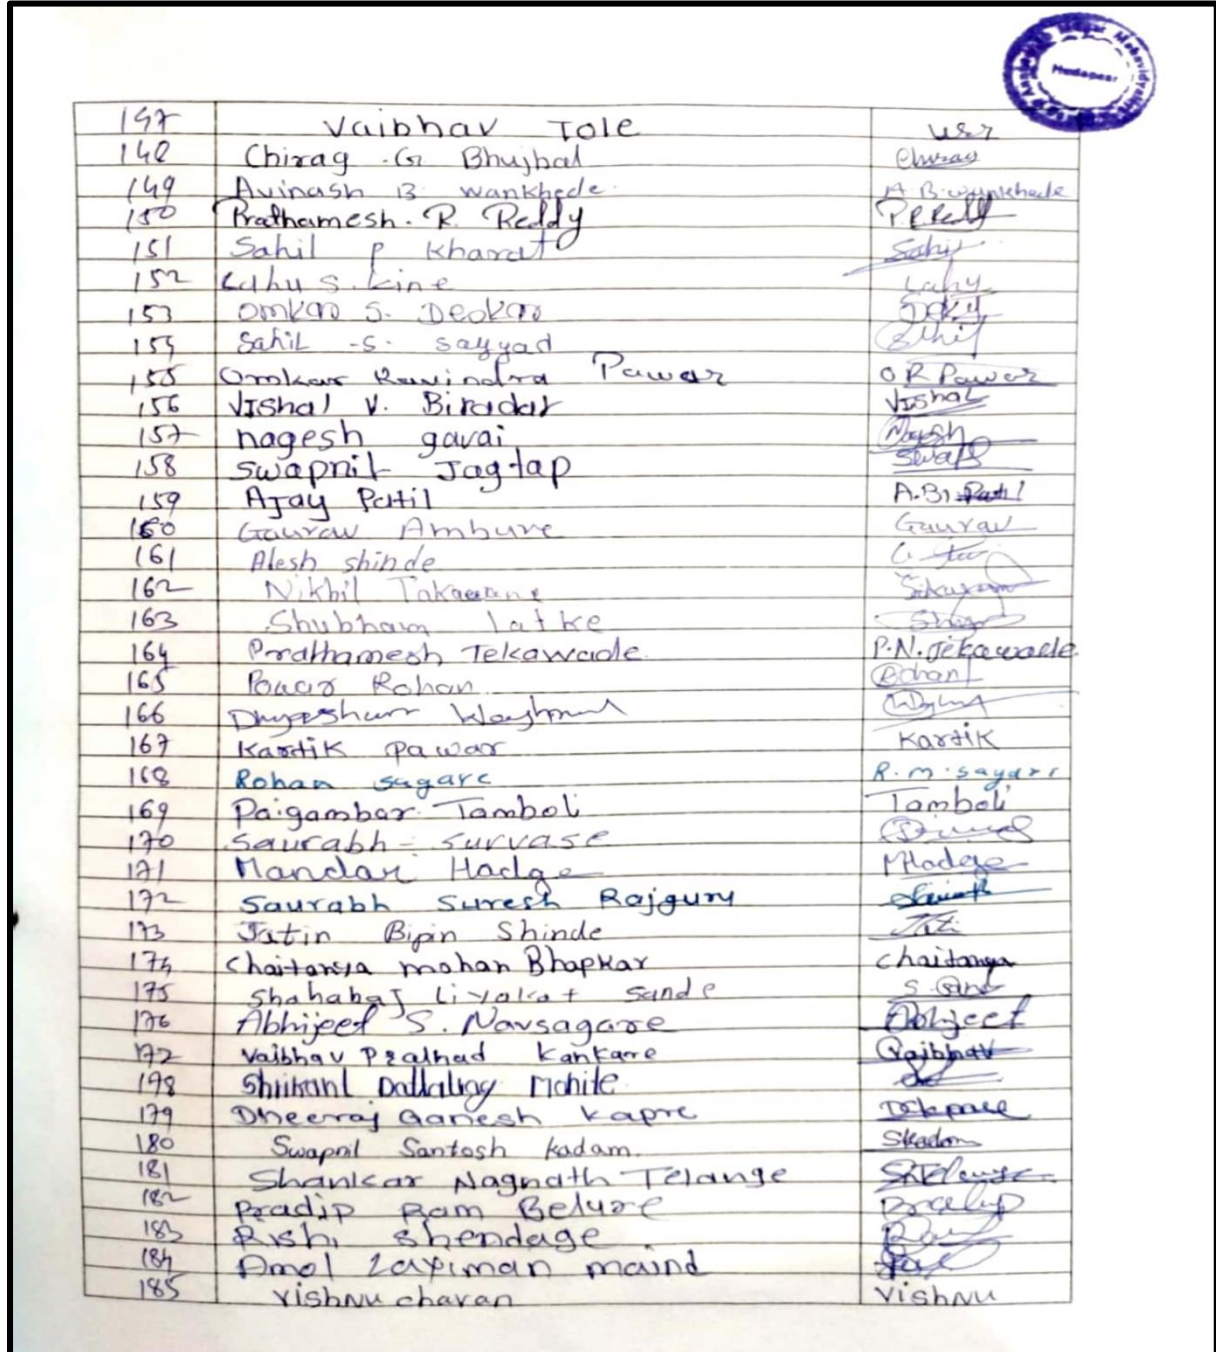 Mahavidyalaya
Hadapsar
147 Vaibhav Tole
148 Chirag .G Bhujbal Chirag
149 Avinash B. wankhede. A.B.wankhede
150 Prathamesh. R. Reddy P.R.Reddy
151 Sahil P Kharat Sahil
152 Lahu S. kine Lahu
153 Omkar S. Deokar
154 Sahil -S- sayyad Sahil
155 Omkar Ravindra Pawar O R Pawar
156 Vishal V. Biradar Vishal
157 nagesh gavai Nagesh
158 Swapnil Jagtap Swap
159 Ajay Patil A.B. Patil
160 Gaurav Ambure Gaurav
161 Alesh shinde
162 Nikhil Takawane
163 Shubham latke
164 Prathamesh Tekawade. P.N.Tekawade
165 Pawar Rohan Rohan
166
167 Kartik pawar Kartik
168 Rohan sagare R.m.sagare
169 Paigambar Tamboli Tamboli
170 Saurabh - survase
171 Mandar Hadge MHadge
172 Saurabh Suresh Rajguru
173 Jatin Bipin Shinde
174 Chaitanya mohan Bhapkar Chaitanya
175 Shahabaj liyakat Sande
176 Abhijeet S. Navsagare Abhijeet
177 Vaibhav Pralhad Kankare Vaibhav
178 Shrikant Dattatray Mohite
179 Dheeraj Ganesh kapre
180 Swapnil Santosh kadam. Skadam
181 Shankar Nagnath Telange
182 Pradip Ram Belure Pradip
183 Rishi Shendage
184 Amol Laximan maind
185 vishnu chavan vishnu